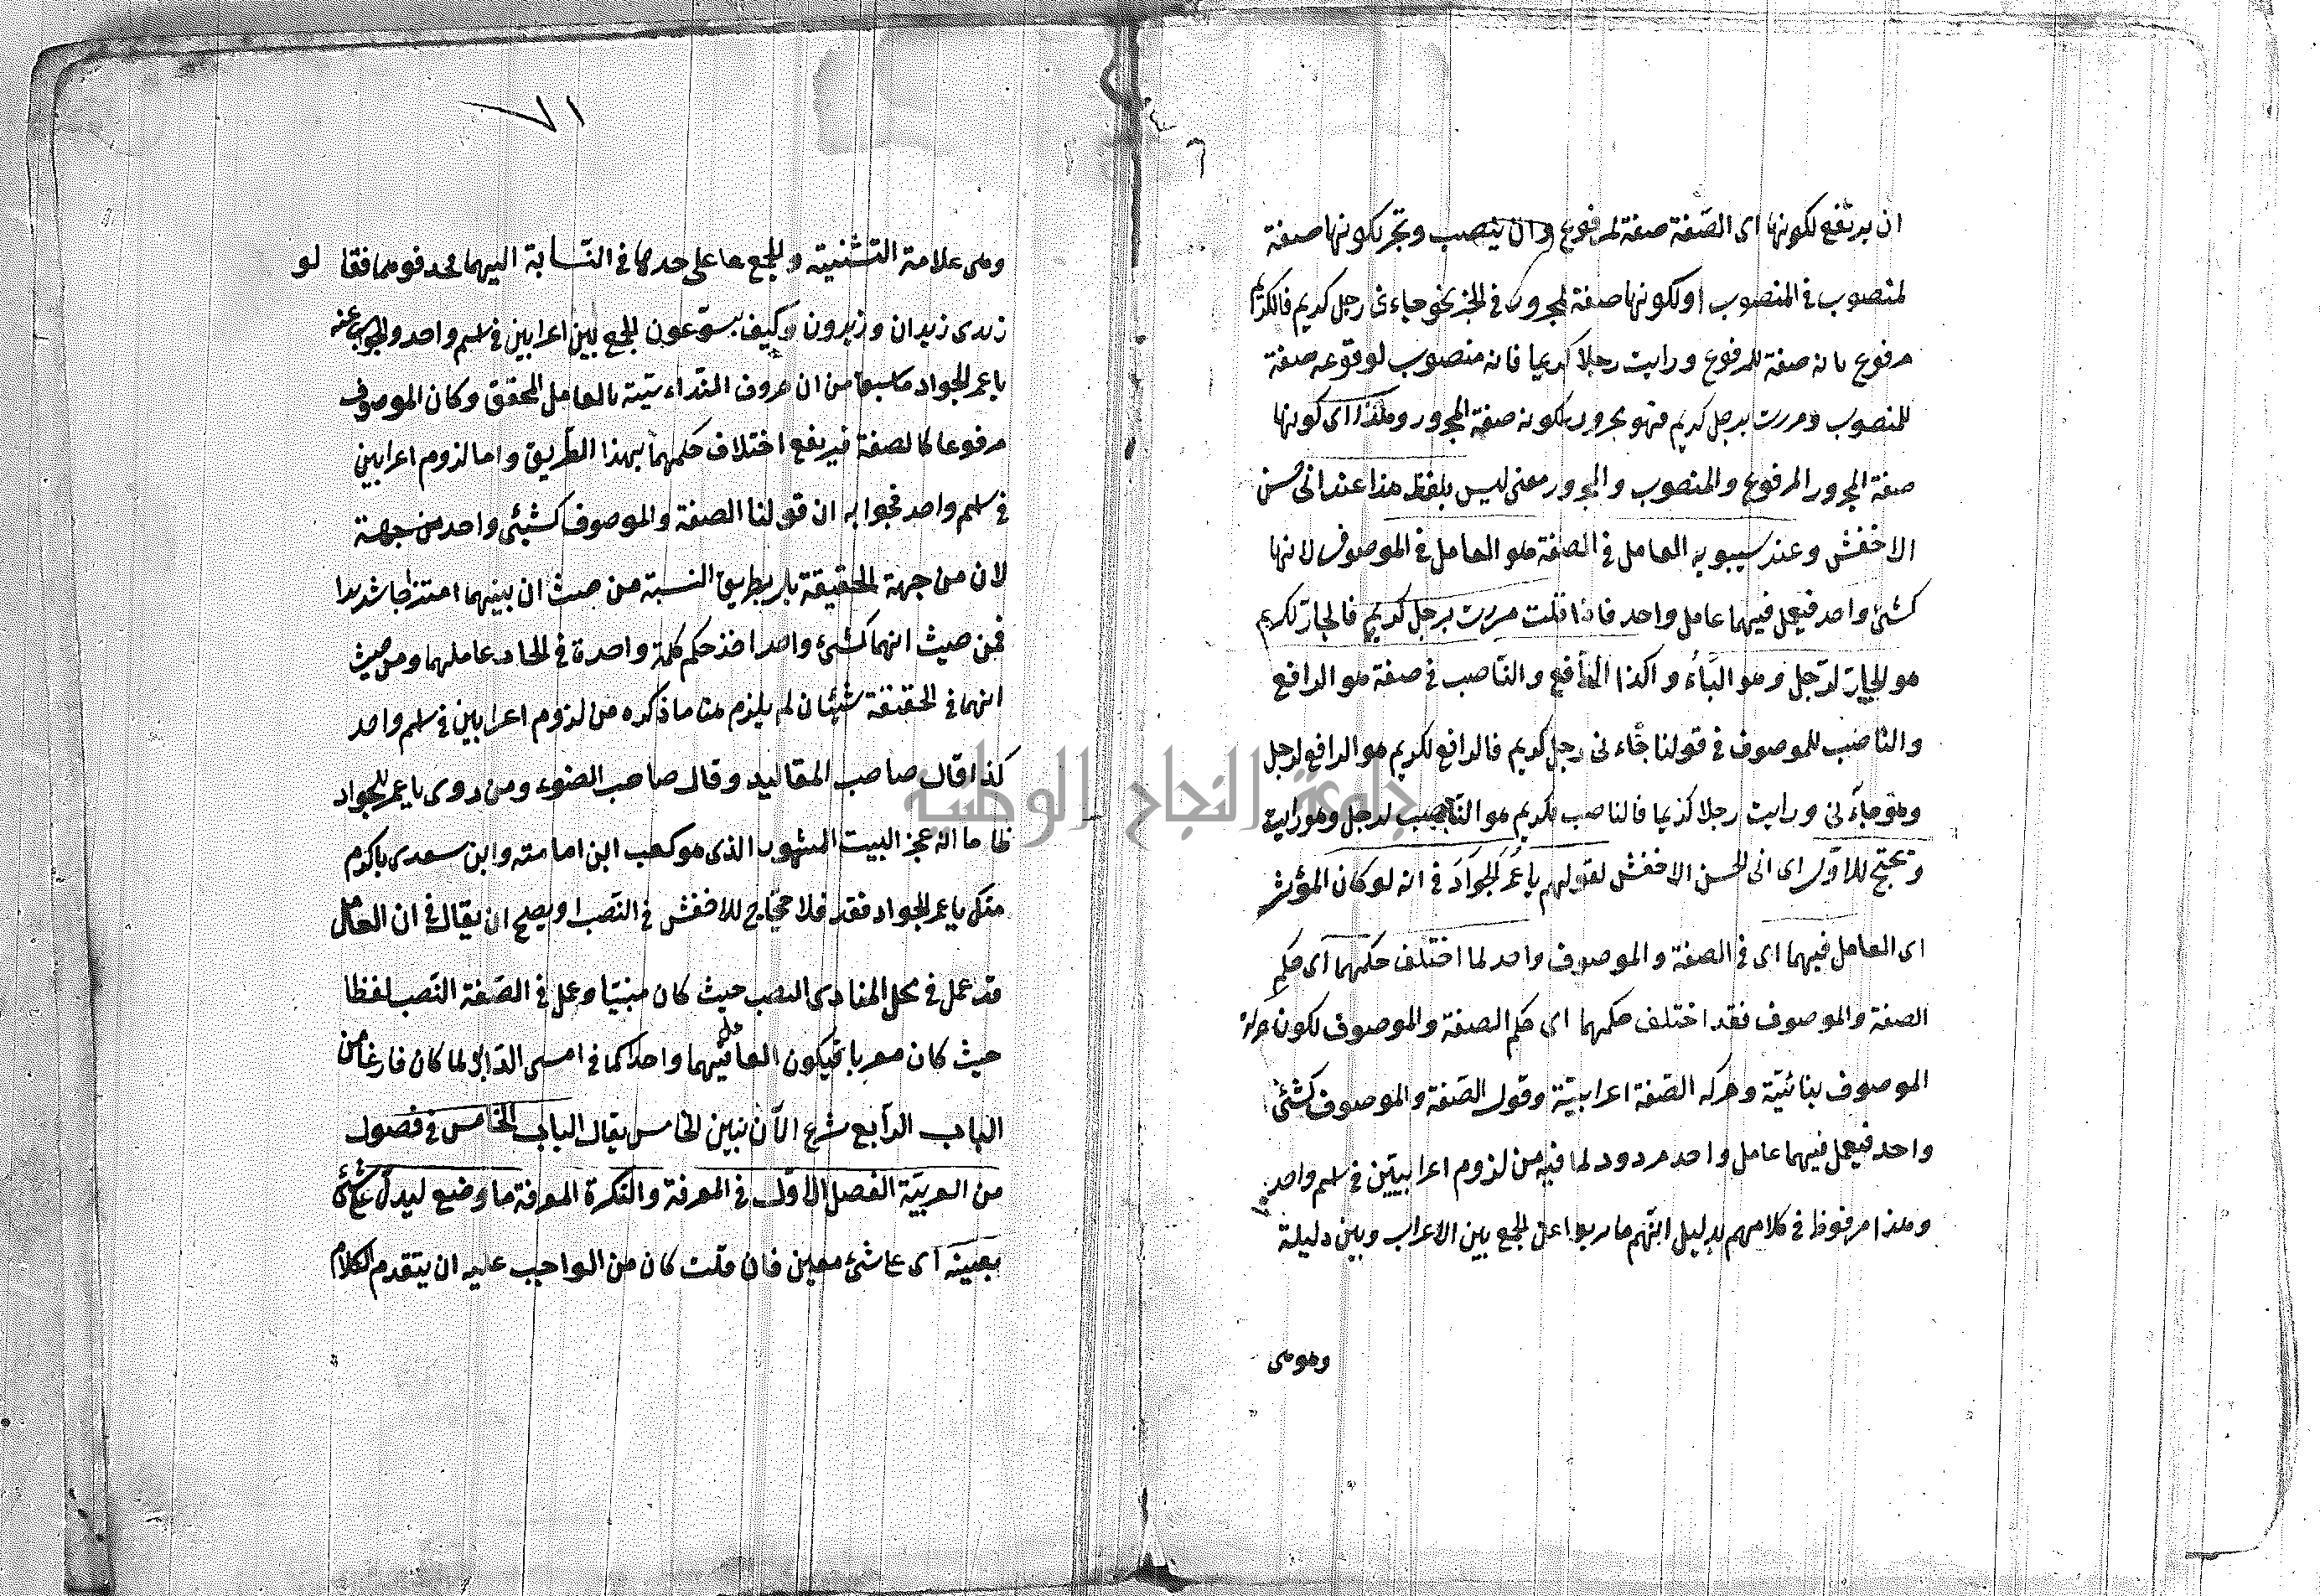 ان يرتفع لكونها اى الصّفة صفة لمرفوع وان ينصب وتجر لكونها صفة
لمنصوب فى المنصوب اولكونها صفة لمجرور فى الجر نحو جاءنى رجل كريم فالكريم
مرفوع بانه صفة للمرفوع ورايت رجلا كريما فانه منصوب لوقوعه صفة
للمنصوب ومررت برجل كريم فهو مجرور لكونه صفة المجرور وهكذا اى كونها
صفة المجرور المرفوع والمنصوب والمجرور معنى ليس بلفظ هذا عند ابى حسن
الاخفش وعند سيبويه العامل فى الصفة هو العامل فى الموصوف لانها
كشئ واحد فيعمل فيهما عامل واحد فاذا قلت مررت برجل كريم فالجار لكريم
هو الجار لرجل وهو الباء واكذا الرافع والناصب فى صفة هو الرافع
والناصب للموصوف فى قولنا جاءنى رجل كريم فالرافع لكريم هو الرافع لرجل
وهو جاءنى ورايت رجلا كريما فالناصب لكريم هو الناصب لرجل وهو رايت
ويحتج للاوّل اى ابى الحسن الاخفش لقولهم يا عمر الجوادَ فى انه لو كان المؤثر
اى العامل فيهما اى فى الصفة والموصوف واحد لما اختلف حكمهما اى حكم
الصفة والموصوف فقد اختلف حكمهما اى حكم الصفة والموصوف لكون حركة
الموصوف بنائيّة وحركه الصّفة اعرابيّة وقول الصّفة والموصوف كشئ
واحد فيعمل فيهما عامل واحد مردود لما فيه من لزوم اعرابيين فى اسم واحد
وهذا مرفوظ فى كلامهم بدليل انّهم هاربوا عن الجمع بين الاعراب وبين دليله
وهو هى
٧١
وهى علامة التثنية والجمع على حدها فى النسابة اليهما محذفوهما فقالو
زيدى زيدان وزيدون وكيف يسوّغون الجمع بين اعرابين فى اسم واحد والجواب عنه
يا عمر الجواد ما سبق من ان حروف النداء شبّة بالعامل المحقق وكان الموصوف
مرفوعا كالصفة فيرفع اختلاف حكمهما بهذا الطريق واما لزوم اعرابين
فى اسم واحد فجوابه ان قولنا الصفة والموصوف كشئ واحد من جهة
لان من جهة الحقيقة بل بطريق النسبة من حيث ان بينهما امتزاجا شديدا
فمن حيث انهما كشئ واحد اخذ حكم كلمة واحدة فى اتحاد عاملهما ومن حيث
انهما فى الحقيقة شيئان لم يلزم منا ما ذكره من لزوم اعرابين فى اسم واحد
كذا قال صاحب المقاليد وقال صاحب الضوء ومن روى يا عمر الجواد
ظاما انه عجز البيت المشهور الذى هو كعب ابن امامته وابن سعدى باكرم
منك يا عمر الجواد فقد فلا حجاج للاخفش فى النصب او يصح ان يقال فى ان العامل
قد عمل فى محل المنادى النصب حيث كان مبنيّا وعمل فى الصّفة النّصب لفظا
حيث كان معربا فيكون العامل فيهما واحدا كما فى امسى الدّابر لما كان فارغا من
الباب الرّابع شرع الآن نبين الخامس يقال الباب الخامس فى فصول
من العربيّة الفصل الاوّل فى المعرفة والنكرة المعرفة ما وضع ليدل على شئ
بعينه اى على شئ معين فان قلت كان من الواجب عليه ان يتقدم الكلام
جامعة النجاح الوطنية